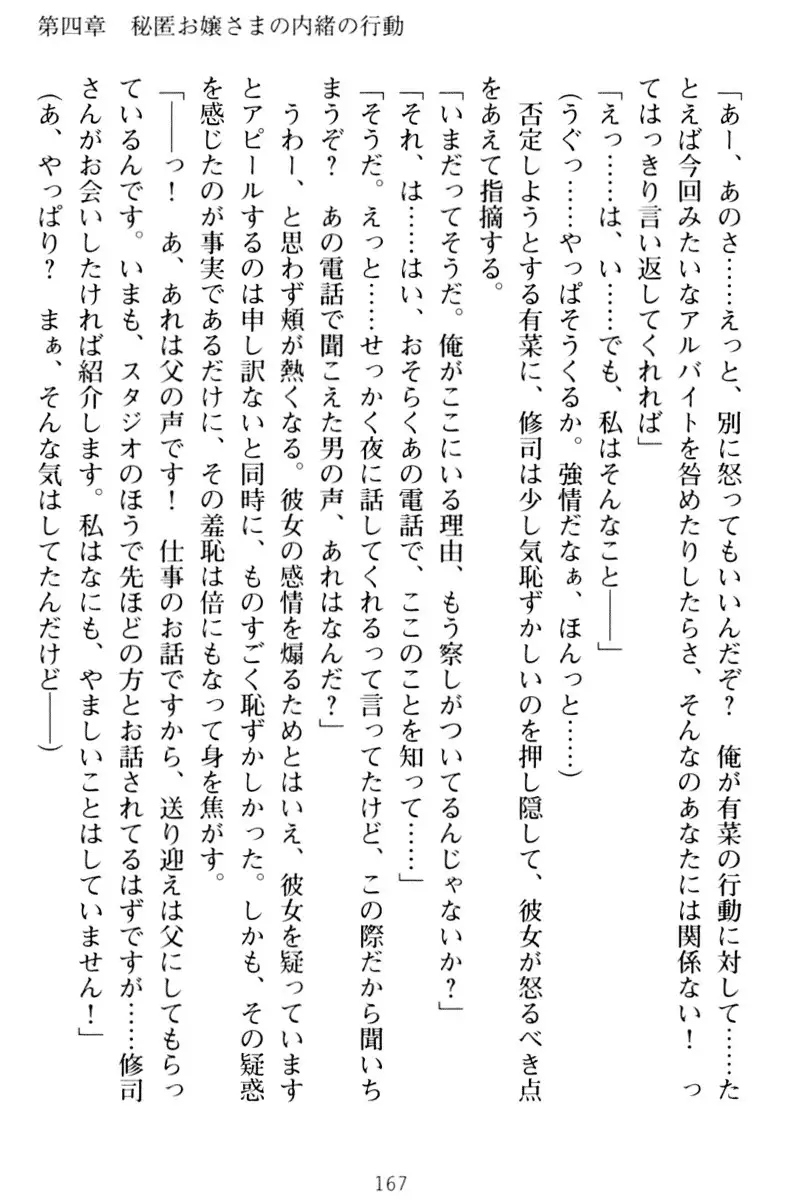 第四章　秘匿お嬢さまの内緒の行動
「あー、あのさ……えっと、別に怒ってもいいんだぞ？　俺が有菜の行動に対して……た
とえば今回みたいなアルバイトを咎めたりしたらさ、そんなのあなたには関係ない！　っ
てはっきり言い返してくれれば」
「えっ……は、い……でも、私はそんなこと――」
（うぐっ……やっぱそうくるか。強情だなぁ、ほんっと……）
　否定しようとする有菜に、修司は少し気恥ずかしいのを押し隠して、彼女が怒るべき点
をあえて指摘する。
「いまだってそうだ。俺がここにいる理由、もう察しがついてるんじゃないか？」
「それ、は……はい、おそらくあの電話で、ここのことを知って……」
「そうだ。えっと……せっかく夜に話してくれるって言ってたけど、この際だから聞いち
まうぞ？　あの電話で聞こえた男の声、あれはなんだ？」
　うわー、と思わず頬が熱くなる。彼女の感情を煽るためとはいえ、彼女を疑っています
とアピールするのは申し訳ないと同時に、ものすごく恥ずかしかった。しかも、その疑惑
を感じたのが事実であるだけに、その羞恥は倍にもなって身を焦がす。
「――っ！　あ、あれは父の声です！　仕事のお話ですから、送り迎えは父にしてもらっ
ているんです。いまも、スタジオのほうで先ほどの方とお話されてるはずですが……修司
さんがお会いしたければ紹介します。私はなにも、やましいことはしていません！」
（あ、やっぱり？　まぁ、そんな気はしてたんだけど――）
167